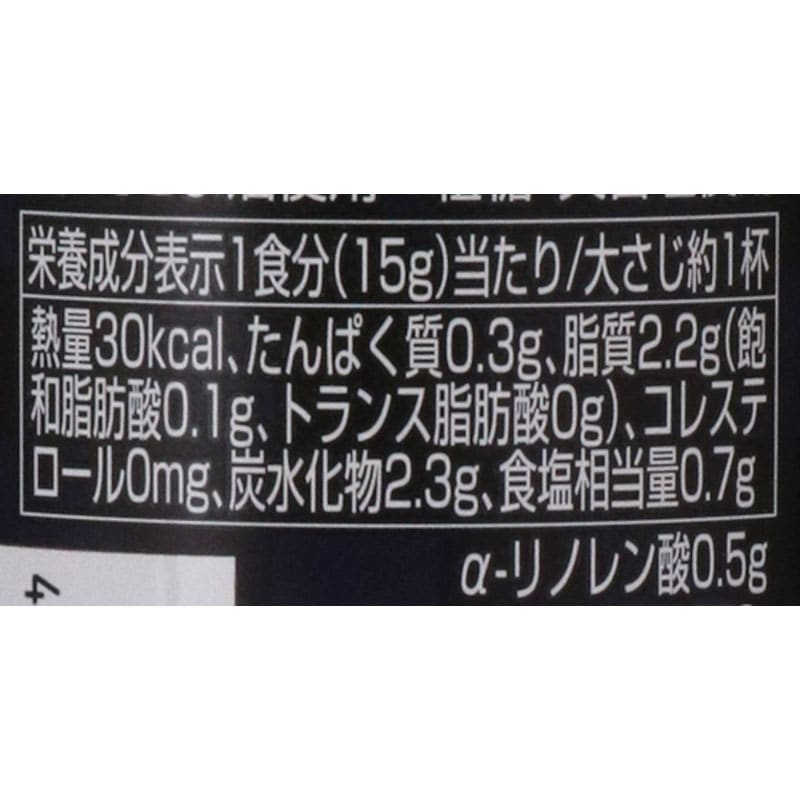 栄養成分表示1食分(15g)当たり/大さじ約1杯
熱量30kcal、たんぱく質0.3g、脂質2.2g(飽
和脂肪酸0.1g、トランス脂肪酸0g)、コレステ
ロール0mg、炭水化物2.3g、食塩相当量0.7g
α-リノレン酸0.5g
4